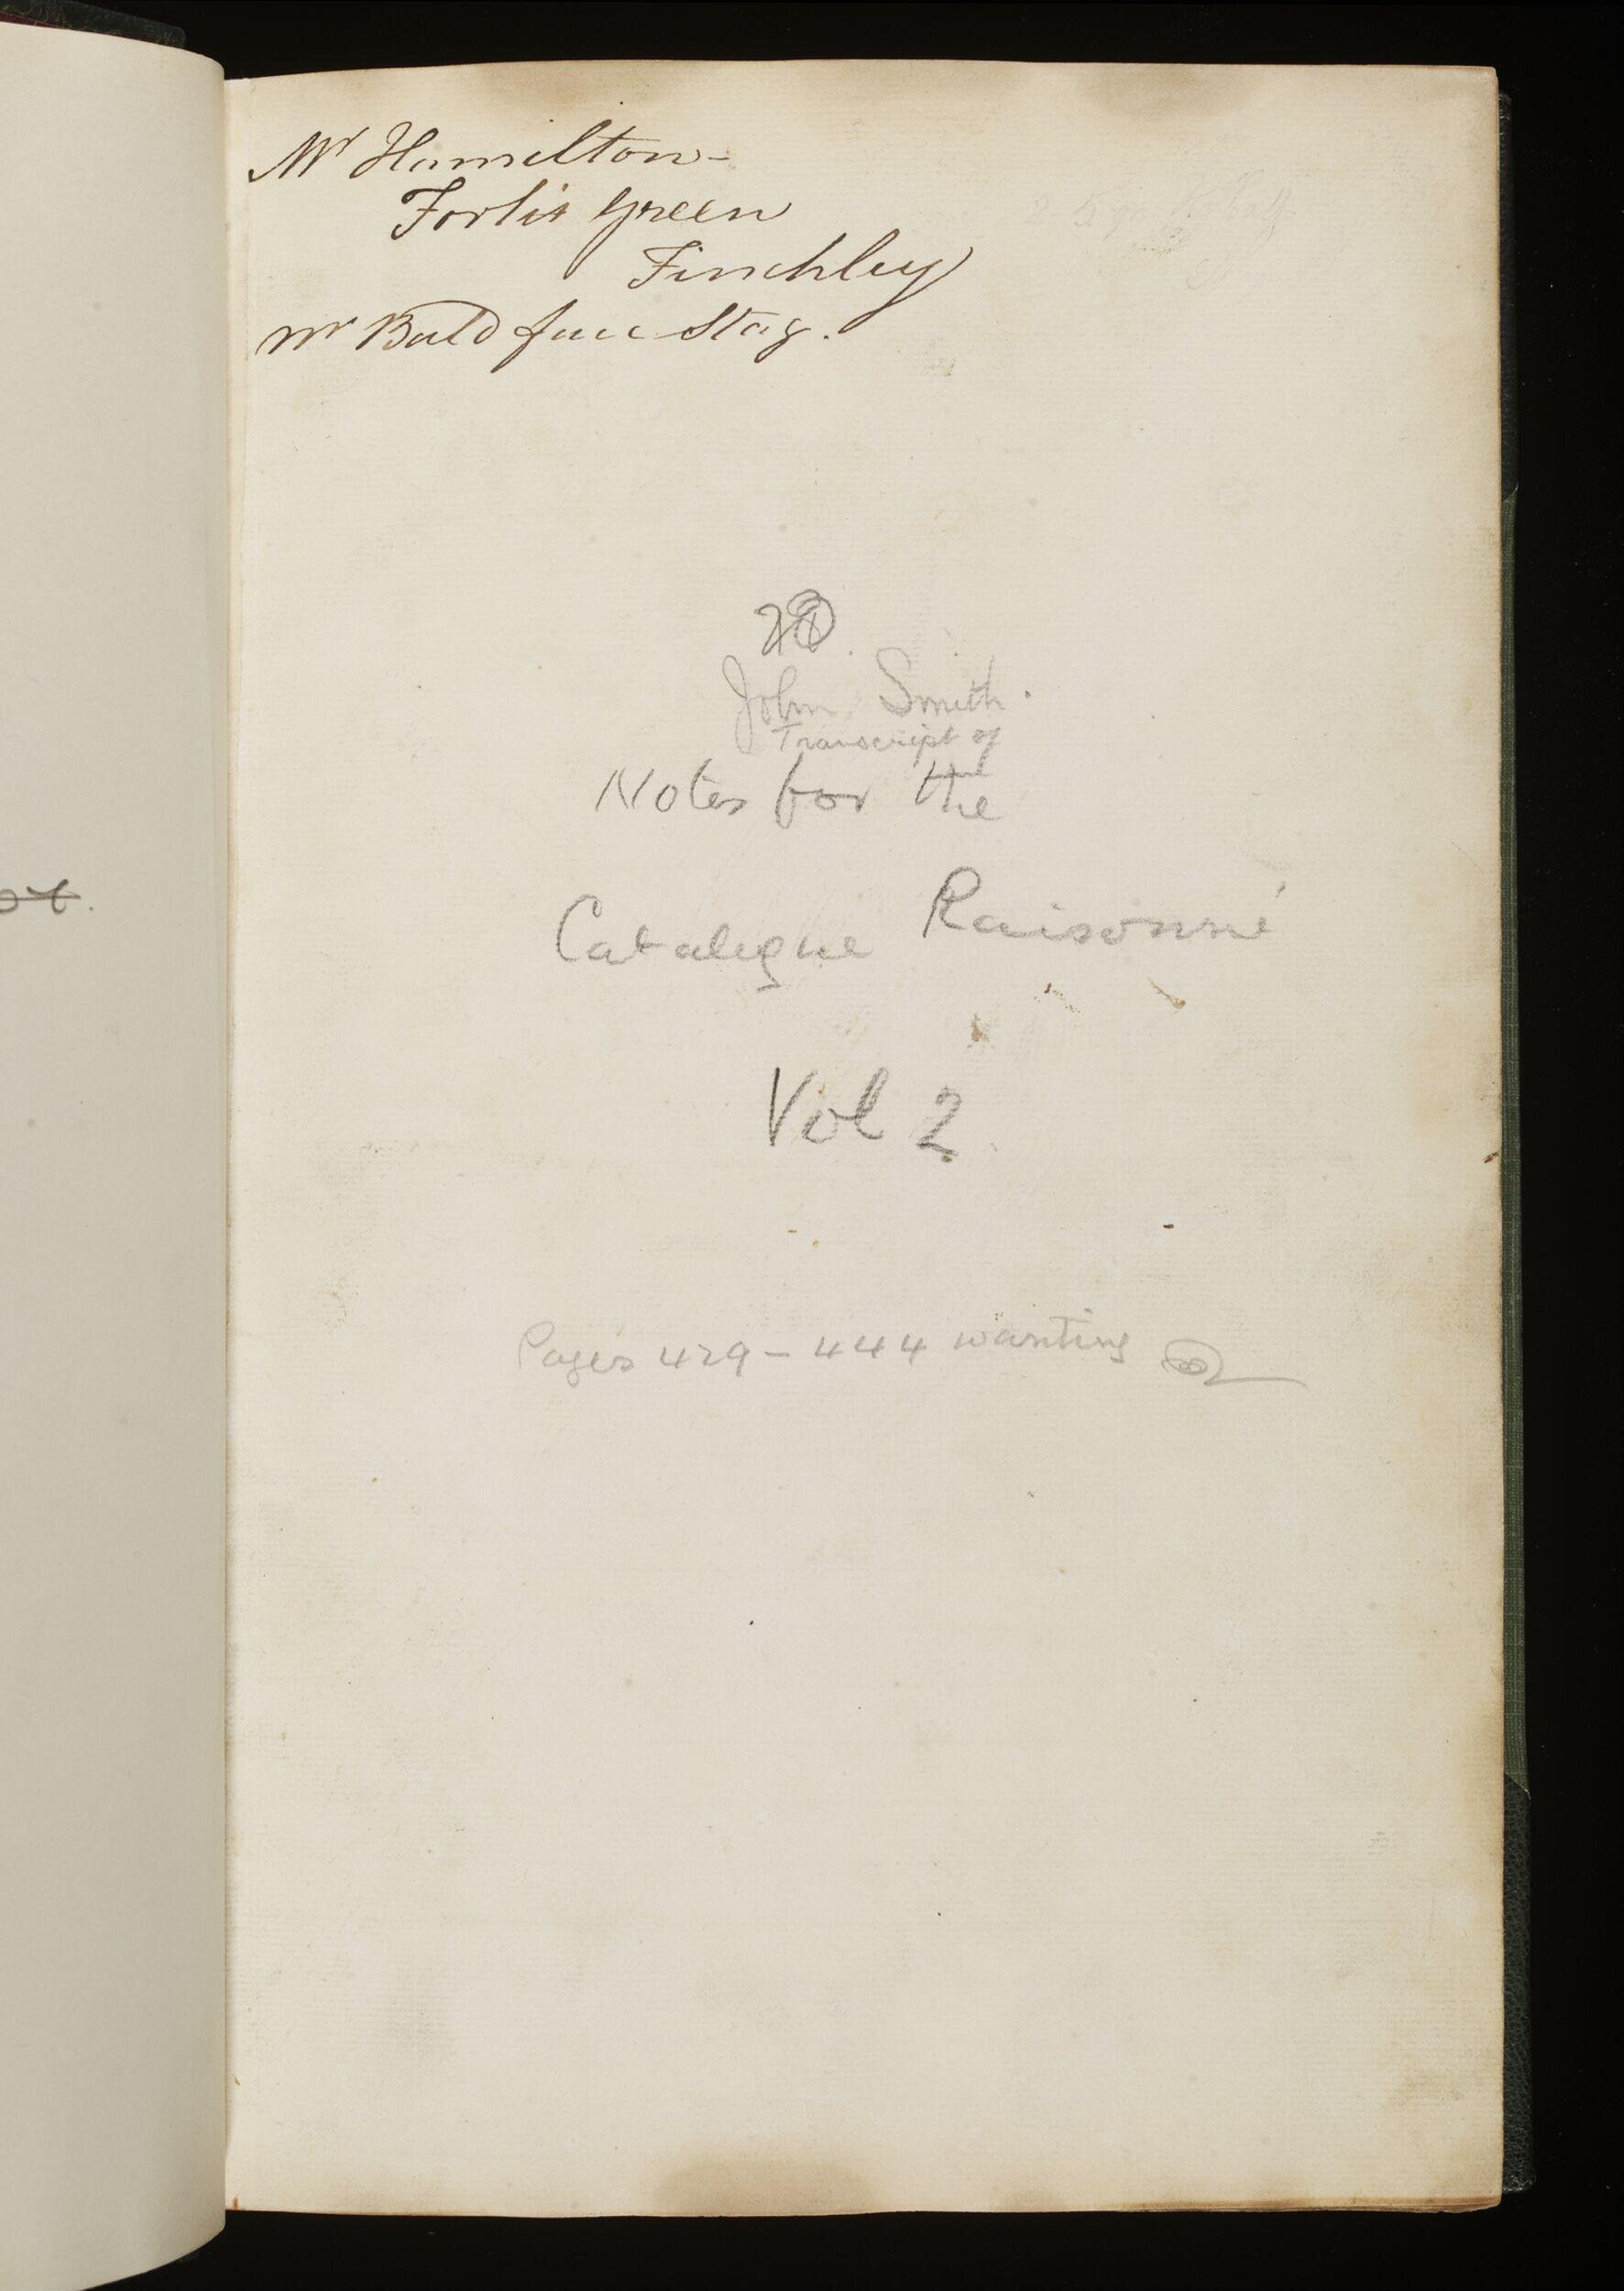 Mr Hamilton -
Fortis Green
Finchley
nr Bald face Stag.
John Smith.
Transcript of
Notes for the
Catalogue Raisonné
Vol 2
Pages 429 - 444 wanting